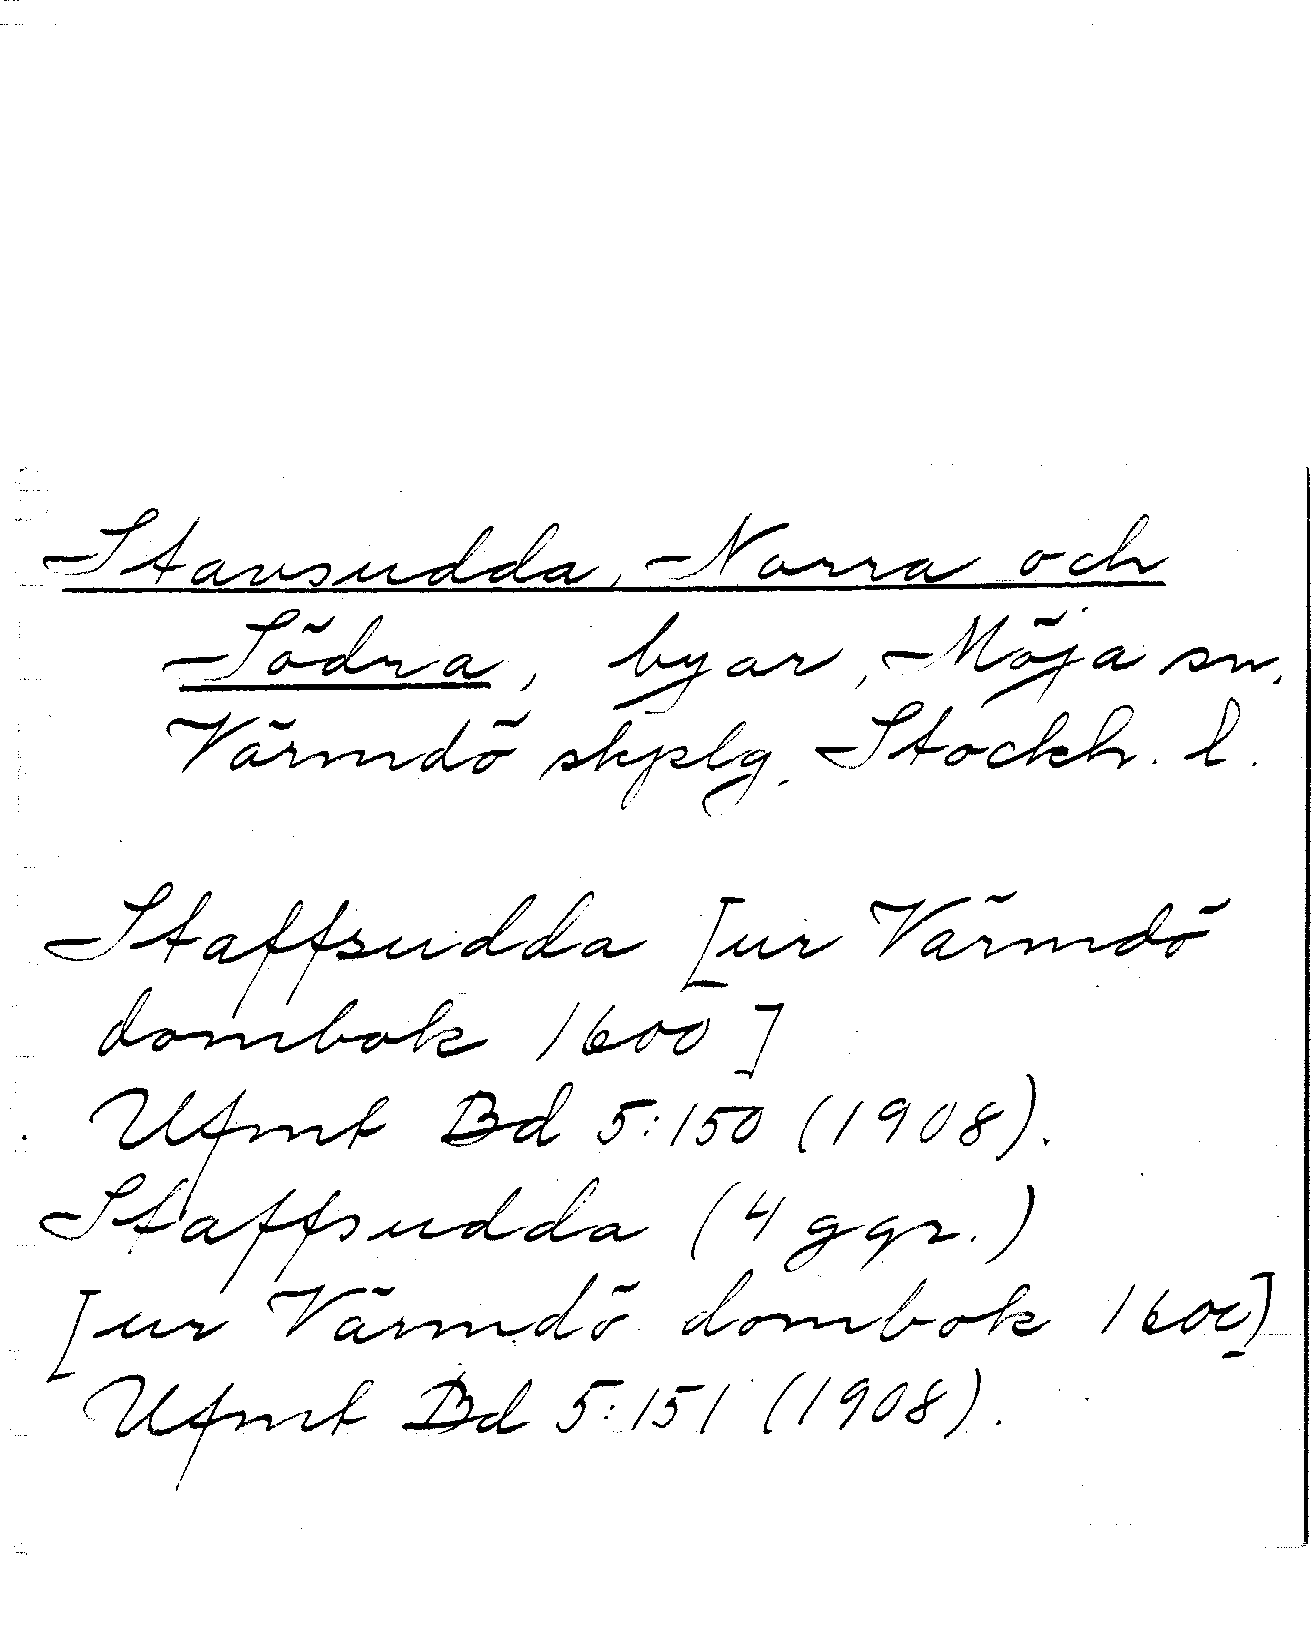 Stavsudda, Norra och
Södra, byar, Möja sn,
Värmdö skplg, Stockh. l.
Staffsudda [ur Värmdö
dombok 1600]
Ufmt Bd 5:150 (1908).
Staffsudda (4 ggr.)
[ur Värmdö dombok 1600]
Ufmt Bd 5:151 (1908).